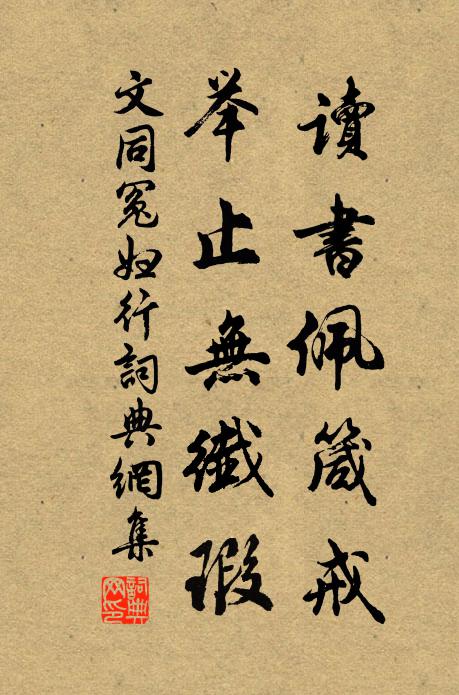 讀書佩箴戒
举止無纖瑕
文同冤婦行詞典網集
詞典网印